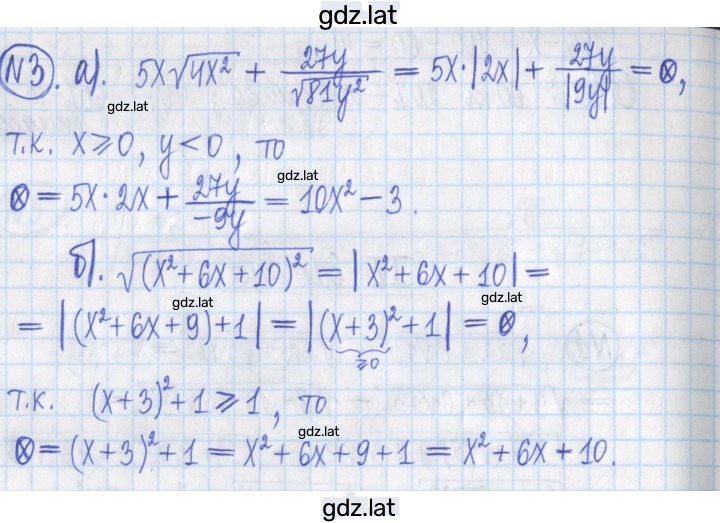 gdz.lat
№3. а). 5x√4x² + 27y/√81y² = 5x·|2x| + 27y/|9y| = ⊗,
gdz.lat
gdz.lat
т.к. x ≥ 0, y < 0, то
gdz.lat
⊗ = 5x·2x + 27y/-9y = 10x² - 3.
gdz.lat
б). √(x² + 6x + 10)² = |x² + 6x + 10| =
gdz.lat
gdz.lat
= |(x² + 6x + 9) + 1| = |(x + 3)² + 1| = ⊗,
≥0
т.к. (x + 3)² + 1 ≥ 1, то
gdz.lat
⊗ = (x + 3)² + 1 = x² + 6x + 9 + 1 = x² + 6x + 10.
gdz.lat